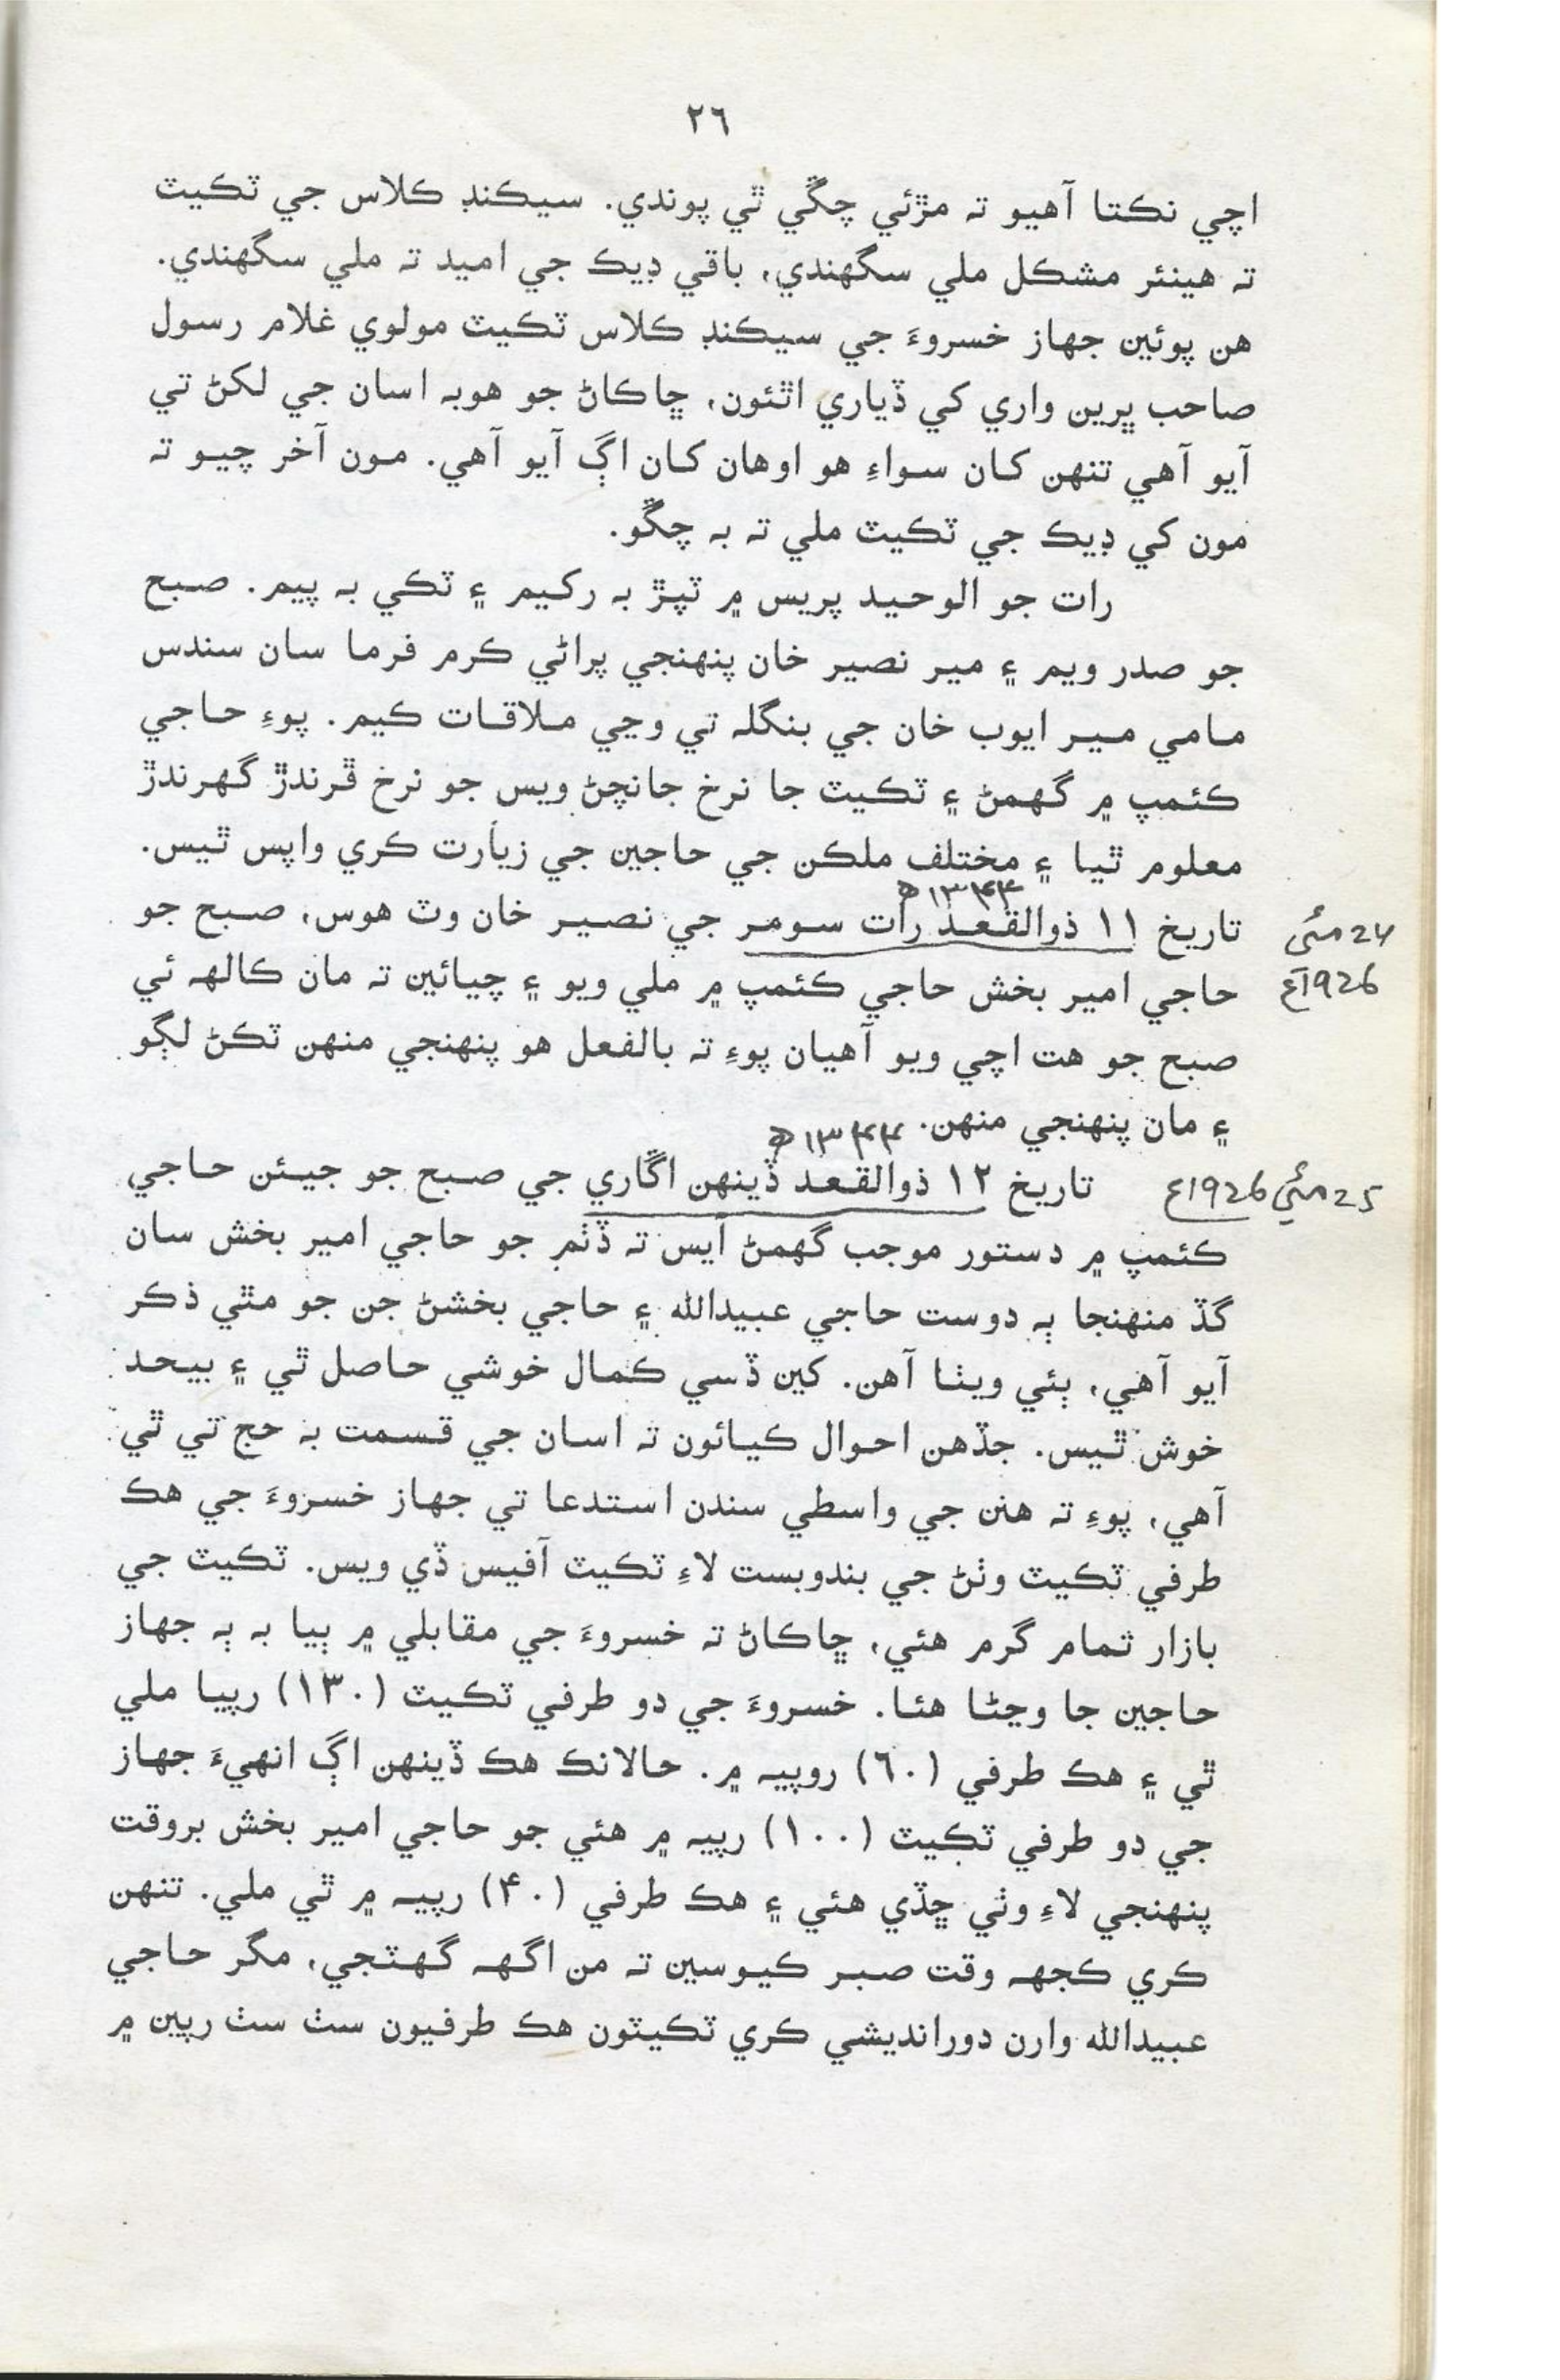 ٢٦
اچي نڪتا آهيو ته مڙئي چڱي ٿي پوندي. سيڪنڊ ڪلاس جي ٽڪيٽ
ته هينئر مشڪل ملي سگهندي، باقي ڊيڪ جي اميد ته ملي سگهندي.
هن پوئين جهاز خسروءَ جي سيڪنڊ ڪلاس ٽڪيٽ مولوي غلام رسول
صاحب ڀرين واري کي ڏياري اٿئون، ڇاڪاڻ جو هوبه اسان جي لکڻ تي
آيو آهي تنهن کان سواءِ هو اوهان کان اڳ آيو آهي. مون آخر چيو ته
مون کي ڊيڪ جي ٽڪيٽ ملي ته به چڱو.
رات جو الوحيد پريس ۾ ٽپڙ به رکيم ۽ ٽڪي به پيم. صبح
جو صدر ويم ۽ مير نصير خان پنهنجي پراڻي ڪرم فرما سان سندس
مامي مير ايوب خان جي بنگله تي وڃي ملاقات ڪيم. پوءِ حاجي
ڪئمپ ۾ گهمڻ ۽ ٽڪيٽ جا نرخ جانچڻ ويس جو نرخ ڦرندڙ گهرندڙ
معلوم ٿيا ۽ مختلف ملڪن جي حاجين جي زيارت ڪري واپس ٿيس.
١٣٤٤ھ
تاريخ ١١ ذوالقعد رات سومر جي نصير خان وٽ هوس، صبح جو
24 مئي
1926ع
حاجي امير بخش حاجي ڪئمپ ۾ ملي ويو ۽ چيائين ته مان ڪالهه ئي
صبح جو هت اچي ويو آهيان پوءِ ته بالفعل هو پنهنجي منهن ٽڪڻ لڳو
۽ مان پنهنجي منهن.
١٣٤٤ھ
25 مئي 1926ع
تاريخ ١٢ ذوالقعد ڏينهن اڱاري جي صبح جو جيئن حاجي
ڪئمپ ۾ دستور موجب گهمڻ آيس ته ڏٺم جو حاجي امير بخش سان
گڏ منهنجا ٻه دوست حاجي عبيدالله ۽ حاجي بخشڻ جن جو مٿي ذڪر
آيو آهي، ٻئي ويٺا آهن. کين ڏسي ڪمال خوشي حاصل ٿي ۽ بيحد
خوش ٿيس. جڏهن احوال ڪيائون ته اسان جي قسمت به حج تي ٿي
آهي، پوءِ ته هنن جي واسطي سندن استدعا تي جهاز خسروءَ جي هڪ
طرفي ٽڪيٽ وٺڻ جي بندوبست لاءِ ٽڪيٽ آفيس ڏي ويس. ٽڪيٽ جي
بازار تمام گرم هئي، ڇاڪاڻ ته خسروءَ جي مقابلي ۾ ٻيا به ٻه جهاز
حاجين جا وڃڻا هئا. خسروءَ جي دو طرفي ٽڪيٽ (١٣٠) رپيا ملي
ٿي ۽ هڪ طرفي (٦٠) روپيه ۾. حالانڪ هڪ ڏينهن اڳ انهيءَ جهاز
جي دو طرفي ٽڪيٽ (١٠٠) رپيه ۾ هئي جو حاجي امير بخش بروقت
پنهنجي لاءِ وٺي ڇڏي هئي ۽ هڪ طرفي (۴٠) رپيه ۾ ٿي ملي. تنهن
ڪري ڪجهه وقت صبر ڪيوسين ته من اگهه گهٽجي، مگر حاجي
عبيدالله وارن دورانديشي ڪري ٽڪيٽون هڪ طرفيون سٺ سٺ رپين ۾